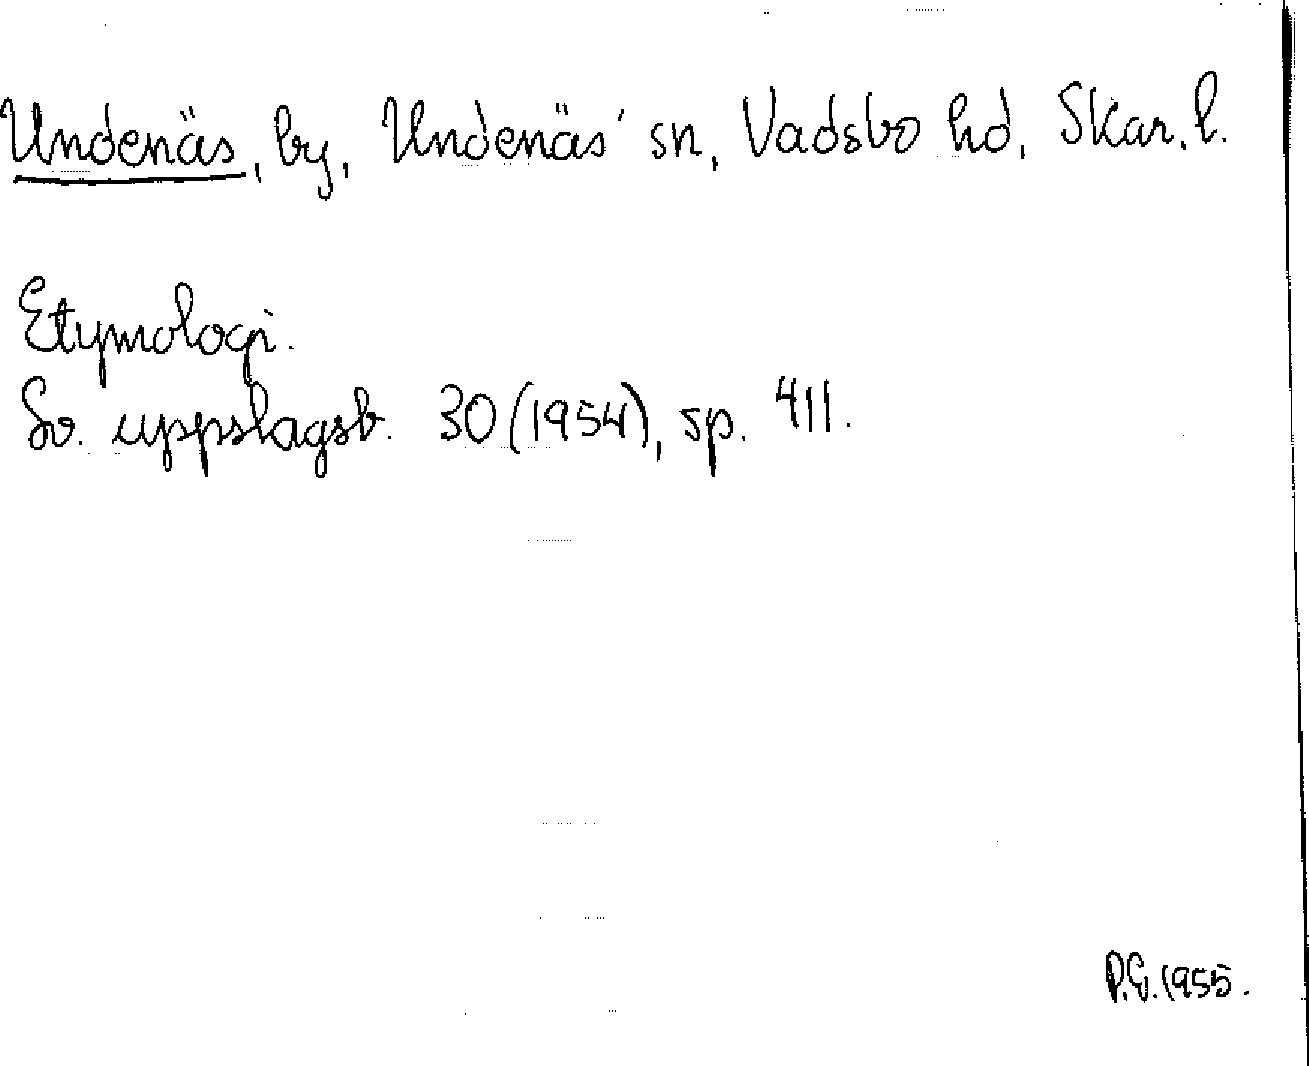 Undenäs, by, Undenäs' sn, Vadsbo hd, Skar. l.
Etymologi.
Sv. uppslagsb. 30 (1954), sp. 411.
P.G. 1955.